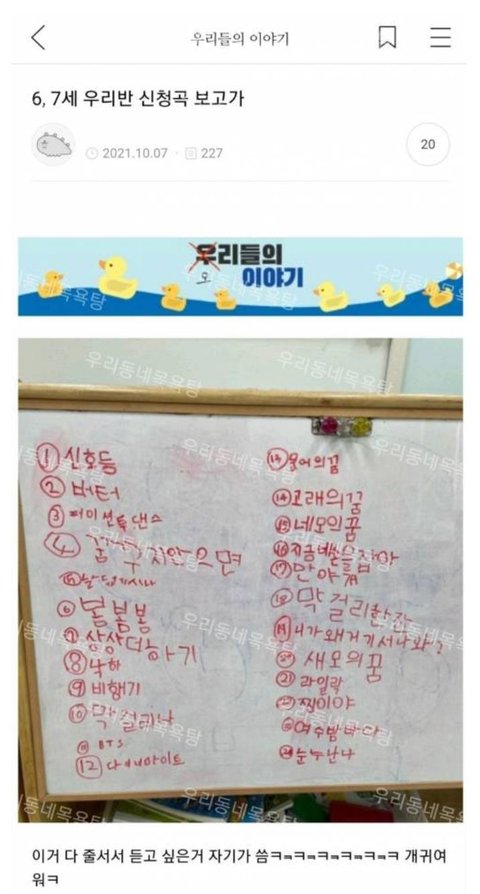 우리들의 이야기
6, 7세 우리반 신청곡 보고가
2021.10.07 · 227
20
우리들의
오 이야기
우리동네목욕탕
① 신호등
② 버터
③ 퍼미션투댄스
④ 춤추지않으면
⑥ 봄봄봄
⑦ 상상더하기
⑧ 낙하
⑨ 비행기
⑩ 막걸리나
⑪ BTS
⑫ 다이너마이트
⑬ 문어의꿈
⑭ 고래의꿈
⑮ 네모의꿈
⑯ 지금네발을잡아
⑰ 만약에
⑱ 막걸리한잔
⑲ 니가왜거기서나와?
⑳ 새모의꿈
㉑ 라일락
찜이야
여수밤바다
눈누난나
이거 다 줄서서 듣고 싶은거 자기가 씀ㅋㅋㅋㅋㅋㅋㅋㅋ 개귀여
워ㅋ